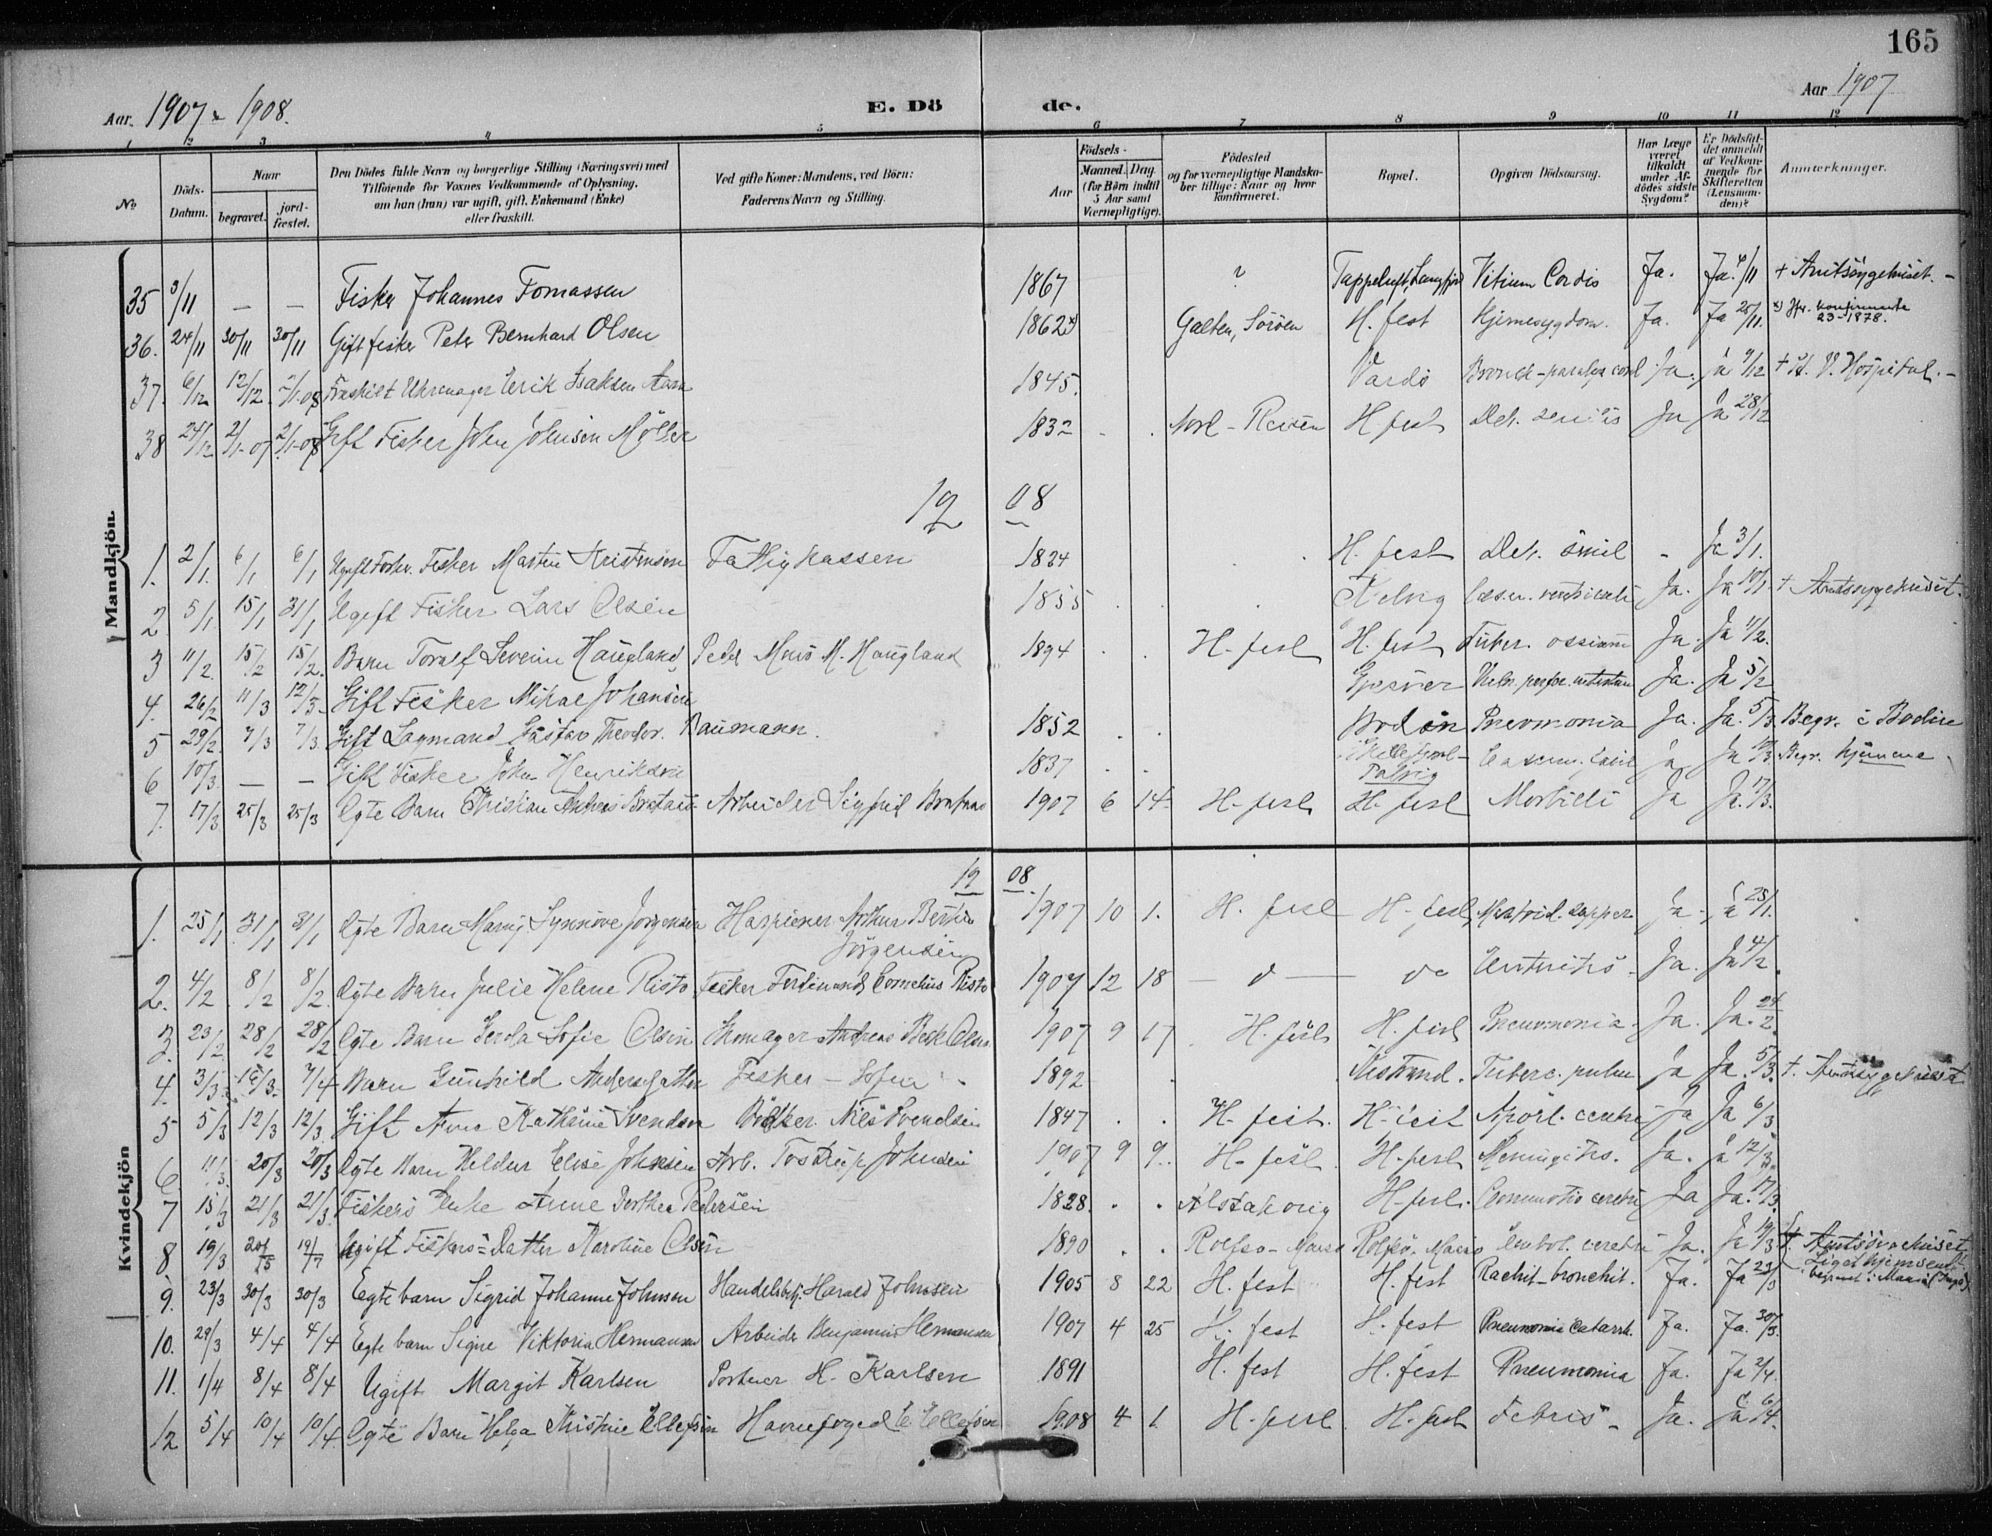 165
Aar 1907 & 1908.
E. Dö de.
Aar 1907
1 2 3 4 5 6 7 8 9 10 11 12
No.
Döds-Datum.
Naar
begravet.
jord-fæstet.
Den Dödes fulde Navn og borgerlige Stilling (Næringsvei) med
Tilföiende for Voxnes Vedkommende af Oplysning,
om han (hun) var ugift, gift, Enkemand (Enke)
eller fraskilt.
Ved gifte Koner: Mandens, ved Börn:
Faderens Navn og Stilling.
Födsels-
Aar
Maaned. Dag.
(for Börn indtil
5 Aar samt
Værnepligtige).
Födested
og for værnepligtige Mandska-
ber tillige: Naar og hvor
konfirmeret.
Bopæl.
Opgiven Dödsaarsag.
Har Læge
været
tilkaldt
under Af-
dödes sidste
Sygdom?
Er Dödsfal-
det anmeldt
af Vedkom-
mende for
Skifteretten
(Lensman-
den)?
Anmærkninger.
Mandkjön.
35 3/11 — — Fisker Johannes Tomassen 1867 ? Tappeluft, Langfjord Vitium Cordis Ja. Ja. 4/11 + Amtssygehuset. -
36. 24/11 30/11 30/11 Gift fisker Peter Bernhard Olsen 1862 x) Galten, Söröen H. fest Hjernesygdom. Ja. Ja 25/11. x) Jfr. konfirmerte 23-1878.
37. 6/12 12/12 2/1-08 Fraskilt Uhrmager Erik Isaksen 1845. Vardö Ja. Ja 7/12 + St. V. Hospital. -
38 24/12 2/1-07 2/1-08 Gift Fisker John Johnsen Möller 1832 . . Nord-Reisen H fest Deb. senilis Ja Ja 28/12
19 08
1. 2/1. 6/1 6/1 Ugift Fisker Martin Kristensen Fattigkassen 1824 H. fest Deb. senil - Ja 3/1.
2 5/1 15/1 31/1 Ugift Fisker Lars Olsen 1855 . . Ja. Ja 10/1. + Amtssygehuset.
3 11/2 15/2 15/2. Barn Toralf Severin Haugland Peder M. Haugland 1894 . . H. fest H. fest Tuber. ossium Ja. Ja 11/2.
4. 26/2 11/3 12/3 Gift Fisker Mikal Johansen Gjesvær Ja. Ja 5/2
5 29/2. 7/3 7/3. Gift Lagmand Gustav Theodor. Baumann. 1852 . . Bodön Pneumonia Ja. Ja. 5/3. Begr. i Bodin
6 10/3 — — Gift Fisker John Henriksen 1837 . . Ja Begr. hjemme.
7. 17/3 25/3 25/3 Ægte Barn Kristian Andreas Arbeider Sigfrid 1907 6 14 H-fest H. fest Morbilli Ja Ja. 17/3.
Kvindekjön
19 08.
1. 25/1 31/1 31/1 Ægte Barn Synnöve Jörgensen Harpuner Arthur
Jörgensen 1907 10 1. H. fest H-fest Ja. Ja 25/1.
2. 4/2 8/2 8/2. Ægte Barn Julie Helene Risto Fisker Ferdinand Cornelius Risto 1907 12 18 — d — do Enteritis Ja. Ja 4/2.
3. 23/2 28/2 28/2 Ægte Barn Gerda Sofie Olsen Skomager Andreas Beck Olsen 1907 9 17 H. fest H. fest Pneumonia. Ja. Ja. 24/2.
4. 3/3 16/3. 7/4 Barn Gunhild Andersdatter Fisker — 1892 . Kistrand. Tuberc. pulm Ja Ja. 5/3. +. Amtssygehuset
5 5/3 12/3 12/3. Gift Anna Kathrine Svendsen Nils Svendsen 1847 . . H. fest. H-fest Apopl. cerebri Ja Ja 6/3
6. 11/3. 20/3 20/3 Ægte Barn Hildur Elise Johnsen Arb. Tostrup Johnsen 1907 9 9. H. fest. H. fest Meningitis. Ja. Ja 12/3.
7 15/3 21/3 21/3. Fiskers Enke Anne Dorthea Pedersen 1828. . . Alstahoug H-fest. Commotio cerebri Ja Ja. 17/3.
8 19/3 20/5 19/7 Ugift Fiskers-Datter Karoline Olsen 1890 . . Rolfsö-Maasö Rolfsö, Maasö Embol. cerebri Ja. Ja 19/3 +. Amtssygehuset
Liget hjemsendt,
begravet i Maasö
9. 23/3 30/3 30/3 Egte barn Sigrid Johanne Johnsen Handelsbtj. Harald Johnsen 1905 8 22 H. fest H. fest Rachit-bronchit. Ja. Ja 23/3
10. 29/3 4/4 4/4 Egte barn Signe Viktoria Hermansen Arbeider Benjamin Hermansen 1907 4 25 H. fest H. fest Pneumonia Catarrh. Ja. Ja. 30/3.
11. 1/4 8/4 8/4 Ugift Margit Karlsen Portner H. Karlsen 1891 H. fest H. fest Pneumonia Ja. Ja 2/4.
12 5/4 10/4 10/4 Ægte Barn Helga Kristine Ellefsen Havnefoged E. Ellefsen 1908 4 1. H-fest. H. fest Febris - Ja. Ja 6/4.